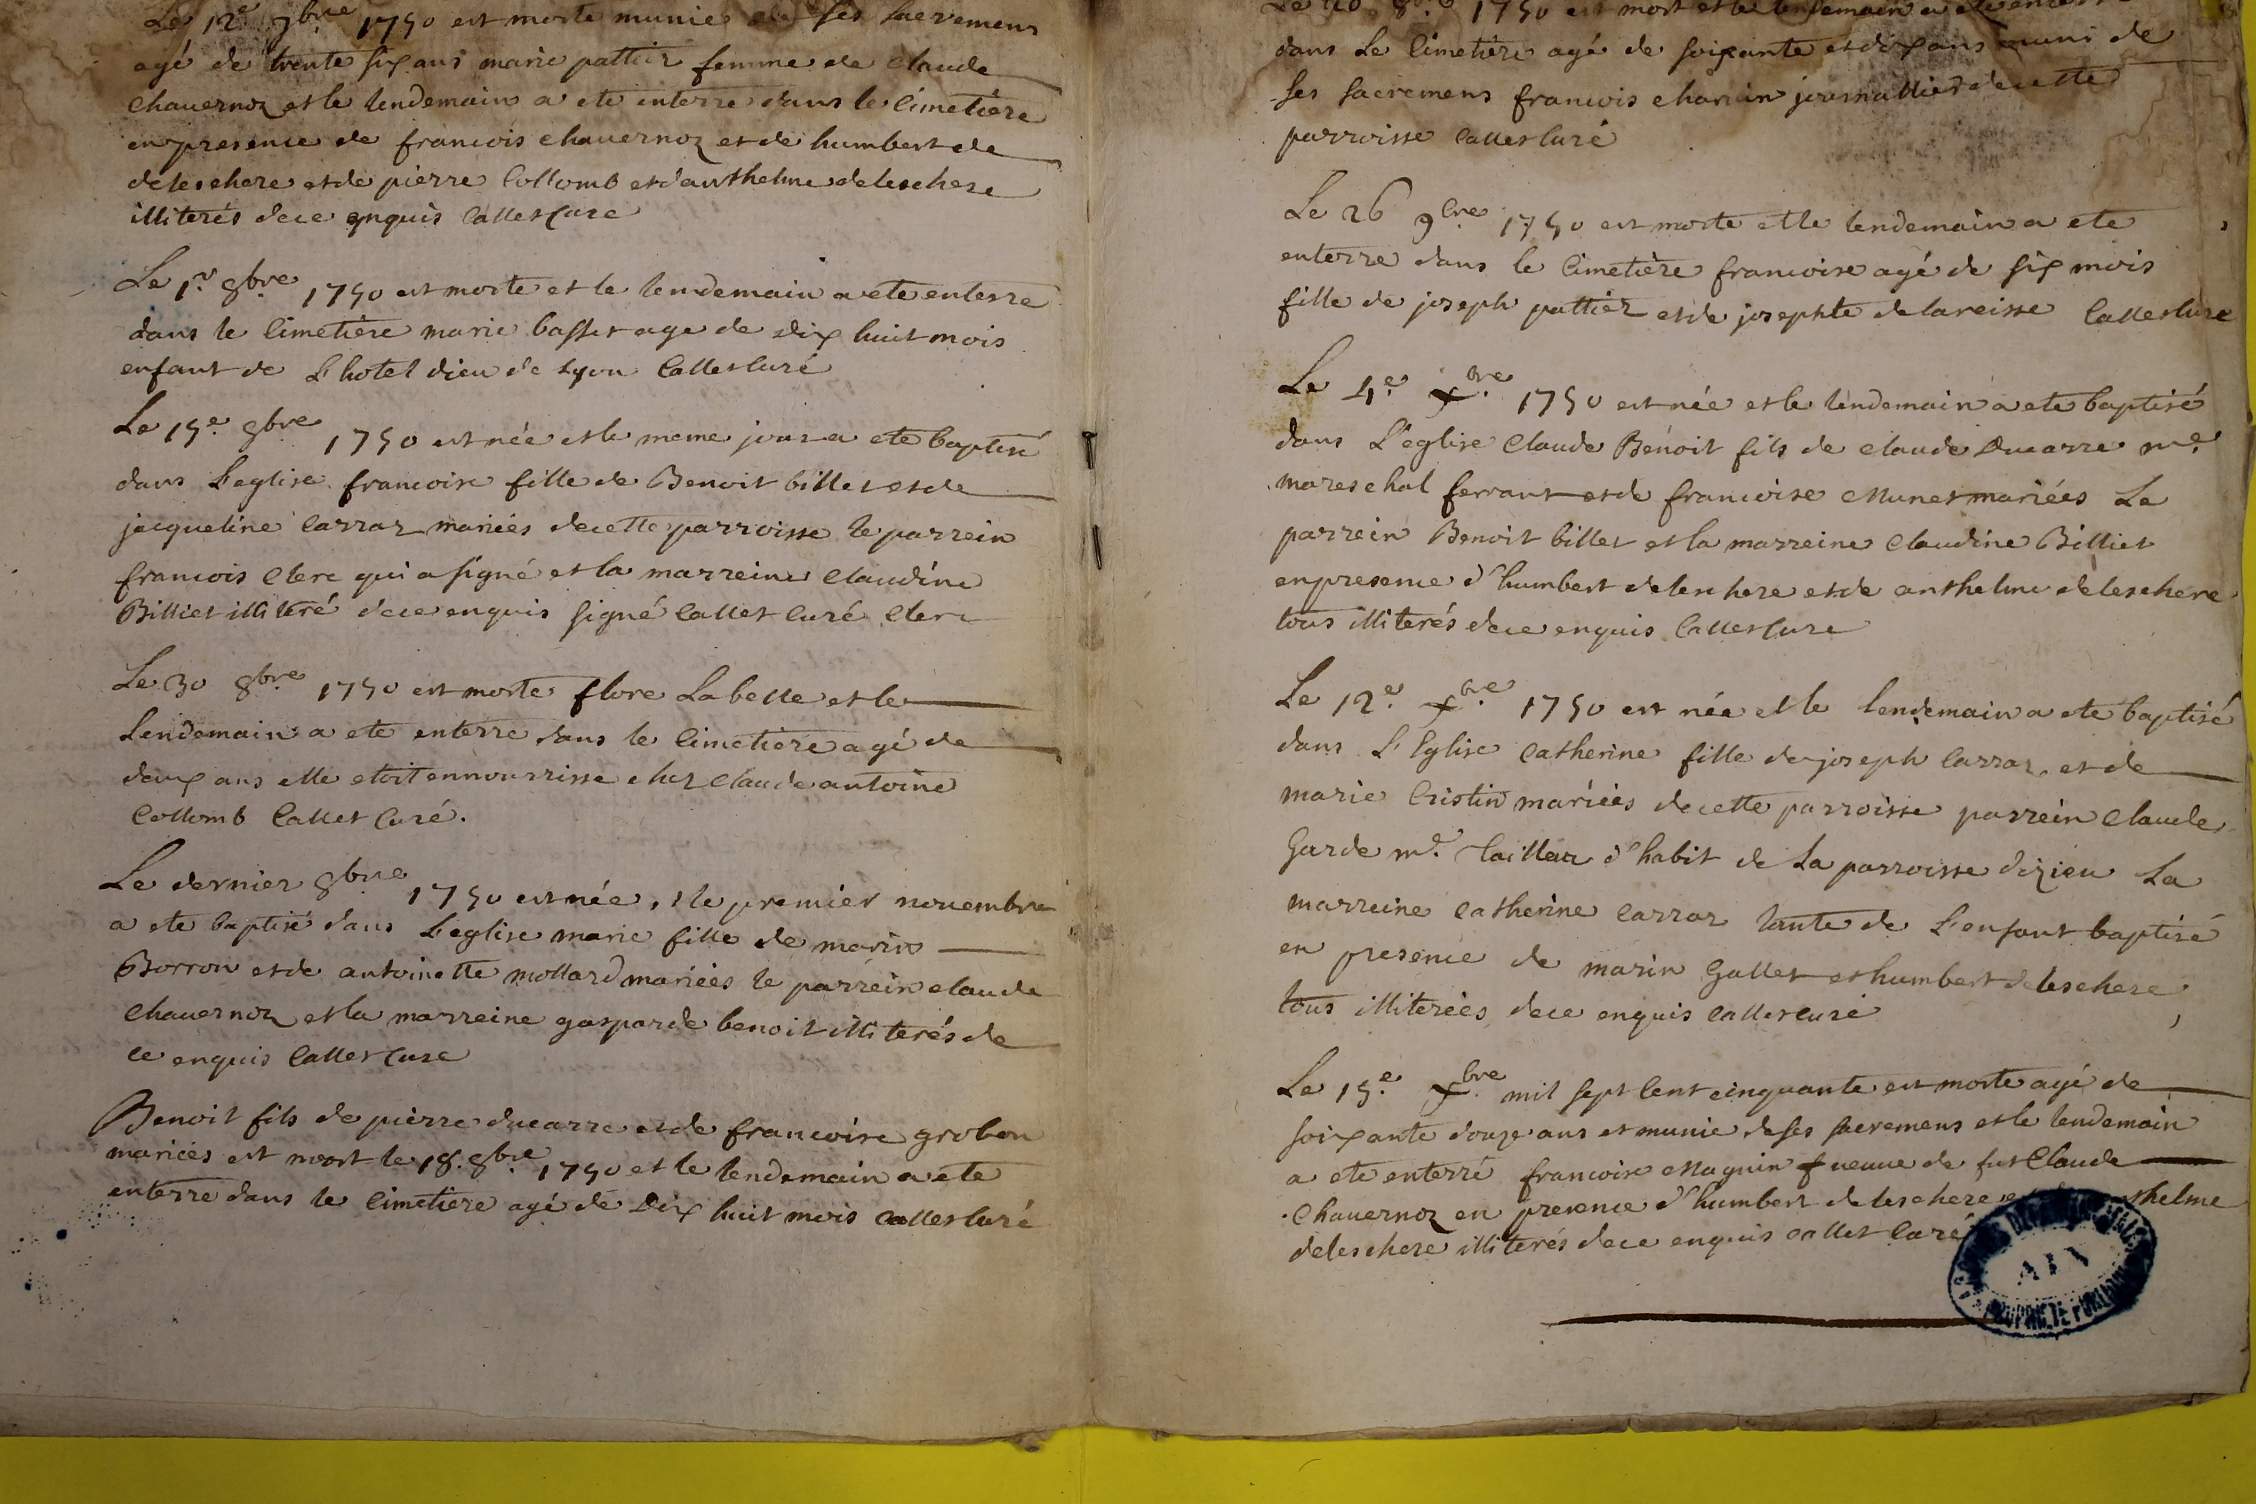 Le 12e 7bre 1750 est morte munie de ses sacremens
agé de trente six ans marie pattier femme de claude
chauernoz et le lendemain a ete enterre dans le Cimetière
en presence de francois chauernoz et de humbert de
deleschere et de pierre Collomb et d'anthelme deleschere
illiterés de ce enquis Callet Cure
Le 1r 8bre 1750 est morte et le lendemain a ete enterre
dans le Cimetière marie basset age de dix huit mois
enfant de L'hotel dieu de Lyon Callet Curé
Le 15e 8bre 1750 est née et le meme jour a ete baptisé
dans L'eglise francoise fille de Benoit billet et de
jacqueline Carraz mariées de cette parroisse le parrein
francois Clerc qui a signé et la marreine Claudine
Billiet illiteré de ce enquis signé Callet Curé Clerc
Le 30 8bre 1750 est morte flore Labelle et le
Lendemain a ete enterre dans le Cimetière agé de
deux ans elle etoit en nourrisse chez Claude antoine
Collomb Callet Curé.
Le dernier 8bre 1750 est née, et le premier novembre
a ete baptisé dans L'eglise marie fille de marin
Borron et de antoinette mollard mariées le parrein claude
Chauernoz et la marreine gasparde benoit illiterés de
ce enquis Callet Cure
Benoit fils de pierre ducarre et de francoise grobon
mariées est moort le 18. 8bre 1750 et le lendemain a ete
enterre dans le Cimetière agé de Dix huit mois Callet Curé
Le 8bre 1750 est mort et le lendemain a ete enterre
dans Le Cimetière agé de soixante et dix ans muni de
ses sacremens francois journallier de cette
parroisse Callet Curé
Le 26 9bre 1750 est morte et le lendemain a ete
enterre dans le Cimetière francoise agé de six mois
fille de joseph pattier et de josephte delareisse Callet Cure
Le 4e Xbre 1750 est née et le lendemain a ete baptisé
dans L'eglise Claude Benoit fils de claude Ducarre me
mareschal ferrant et de francoise Munet mariées Le
parrein Benoit billet et la marreine Claudine Billiet
en presence d'humbert deleschere et de anthelme deleschere
tous illiterés de ce enquis Callet Cure
Le 12e Xbre 1750 est née et le lendemain a ete baptisé
dans L'Eglise Catherine fille de joseph Carraz et de
marie Cristin mariées de cette parroisse parrein Claude
Garde me tailleur d'habit de La parroisse dizieu La
marreine Catherine Carraz tante de L'enfant baptisé
en presence de marin Gallet et humbert deleschere
tous illiterées de ce enquis Callet Curé
Le 15e Xbre mil sept Cent cinquante est morte agé de
soixante douze ans et munie de ses sacremens et le lendemain
a ete enterré francoise Magnin veuve de fut Claude
Chauernoz en presence d'humbert deleschere thelme
deleschere illiterés de ce enquis Callet Curé
AIN